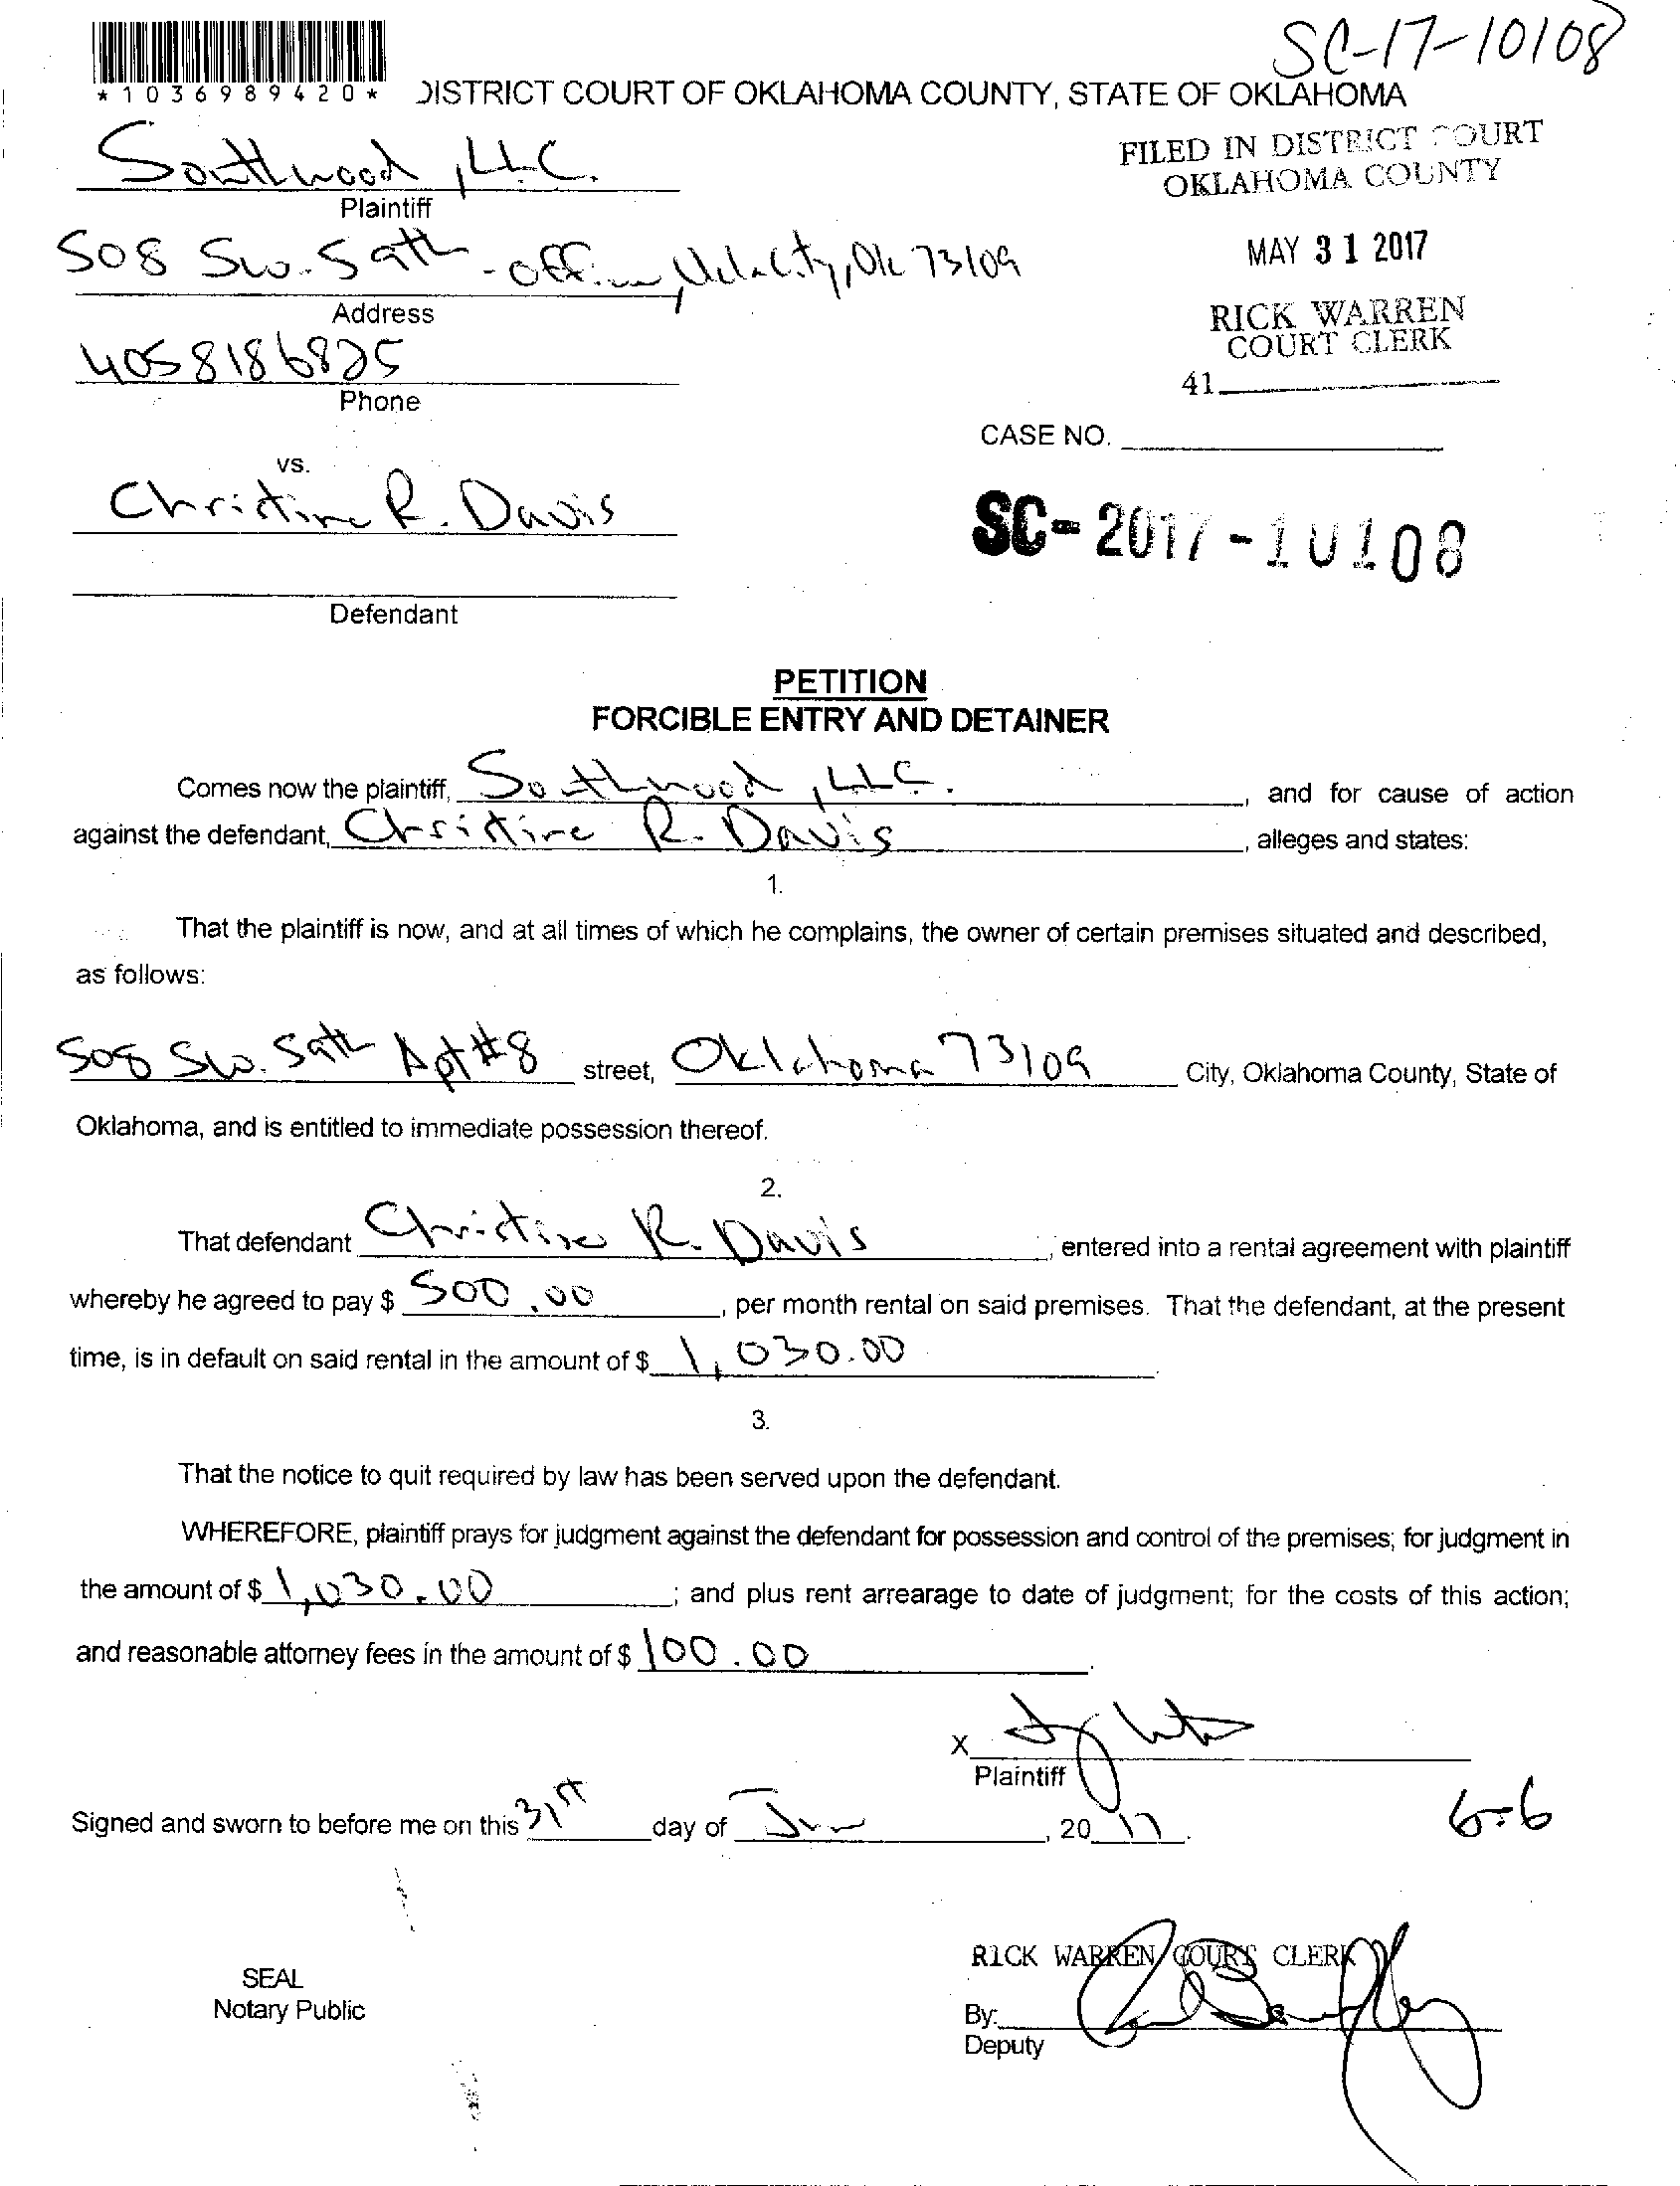 SC-17-10108
*1036989420*
DISTRICT COURT OF OKLAHOMA COUNTY, STATE OF OKLAHOMA
Southwood, LLC.
Plaintiff
FILED IN DISTRICT COURT
OKLAHOMA COUNTY
508 Sw. 59th - Office, Okla City, Ok 73109
Address
MAY 31 2017
4058186825
Phone
RICK WARREN
COURT CLERK
41
CASE NO.
vs.
Christine R. Davis
SC-2017-10108
Defendant
PETITION
FORCIBLE ENTRY AND DETAINER
Comes now the plaintiff, Southwood, LLC. , and for cause of action
against the defendant, Christine R. Davis , alleges and states:
1.
That the plaintiff is now, and at all times of which he complains, the owner of certain premises situated and described,
as follows:
508 Sw. 59th Apt #8 street, Oklahoma 73109 City, Oklahoma County, State of
Oklahoma, and is entitled to immediate possession thereof.
2.
That defendant Christine R. Davis , entered into a rental agreement with plaintiff
whereby he agreed to pay $ 500.00 , per month rental on said premises. That the defendant, at the present
time, is in default on said rental in the amount of $ 1,030.00 .
3.
That the notice to quit required by law has been served upon the defendant.
WHEREFORE, plaintiff prays for judgment against the defendant for possession and control of the premises; for judgment in
the amount of $ 1,030.00 ; and plus rent arrearage to date of judgment; for the costs of this action;
and reasonable attorney fees in the amount of $ 100.00 .
X
Plaintiff
Signed and sworn to before me on this 31st day of , 2017.
6-6
RICK WARREN COURT CLERK
SEAL
Notary Public
By:
Deputy